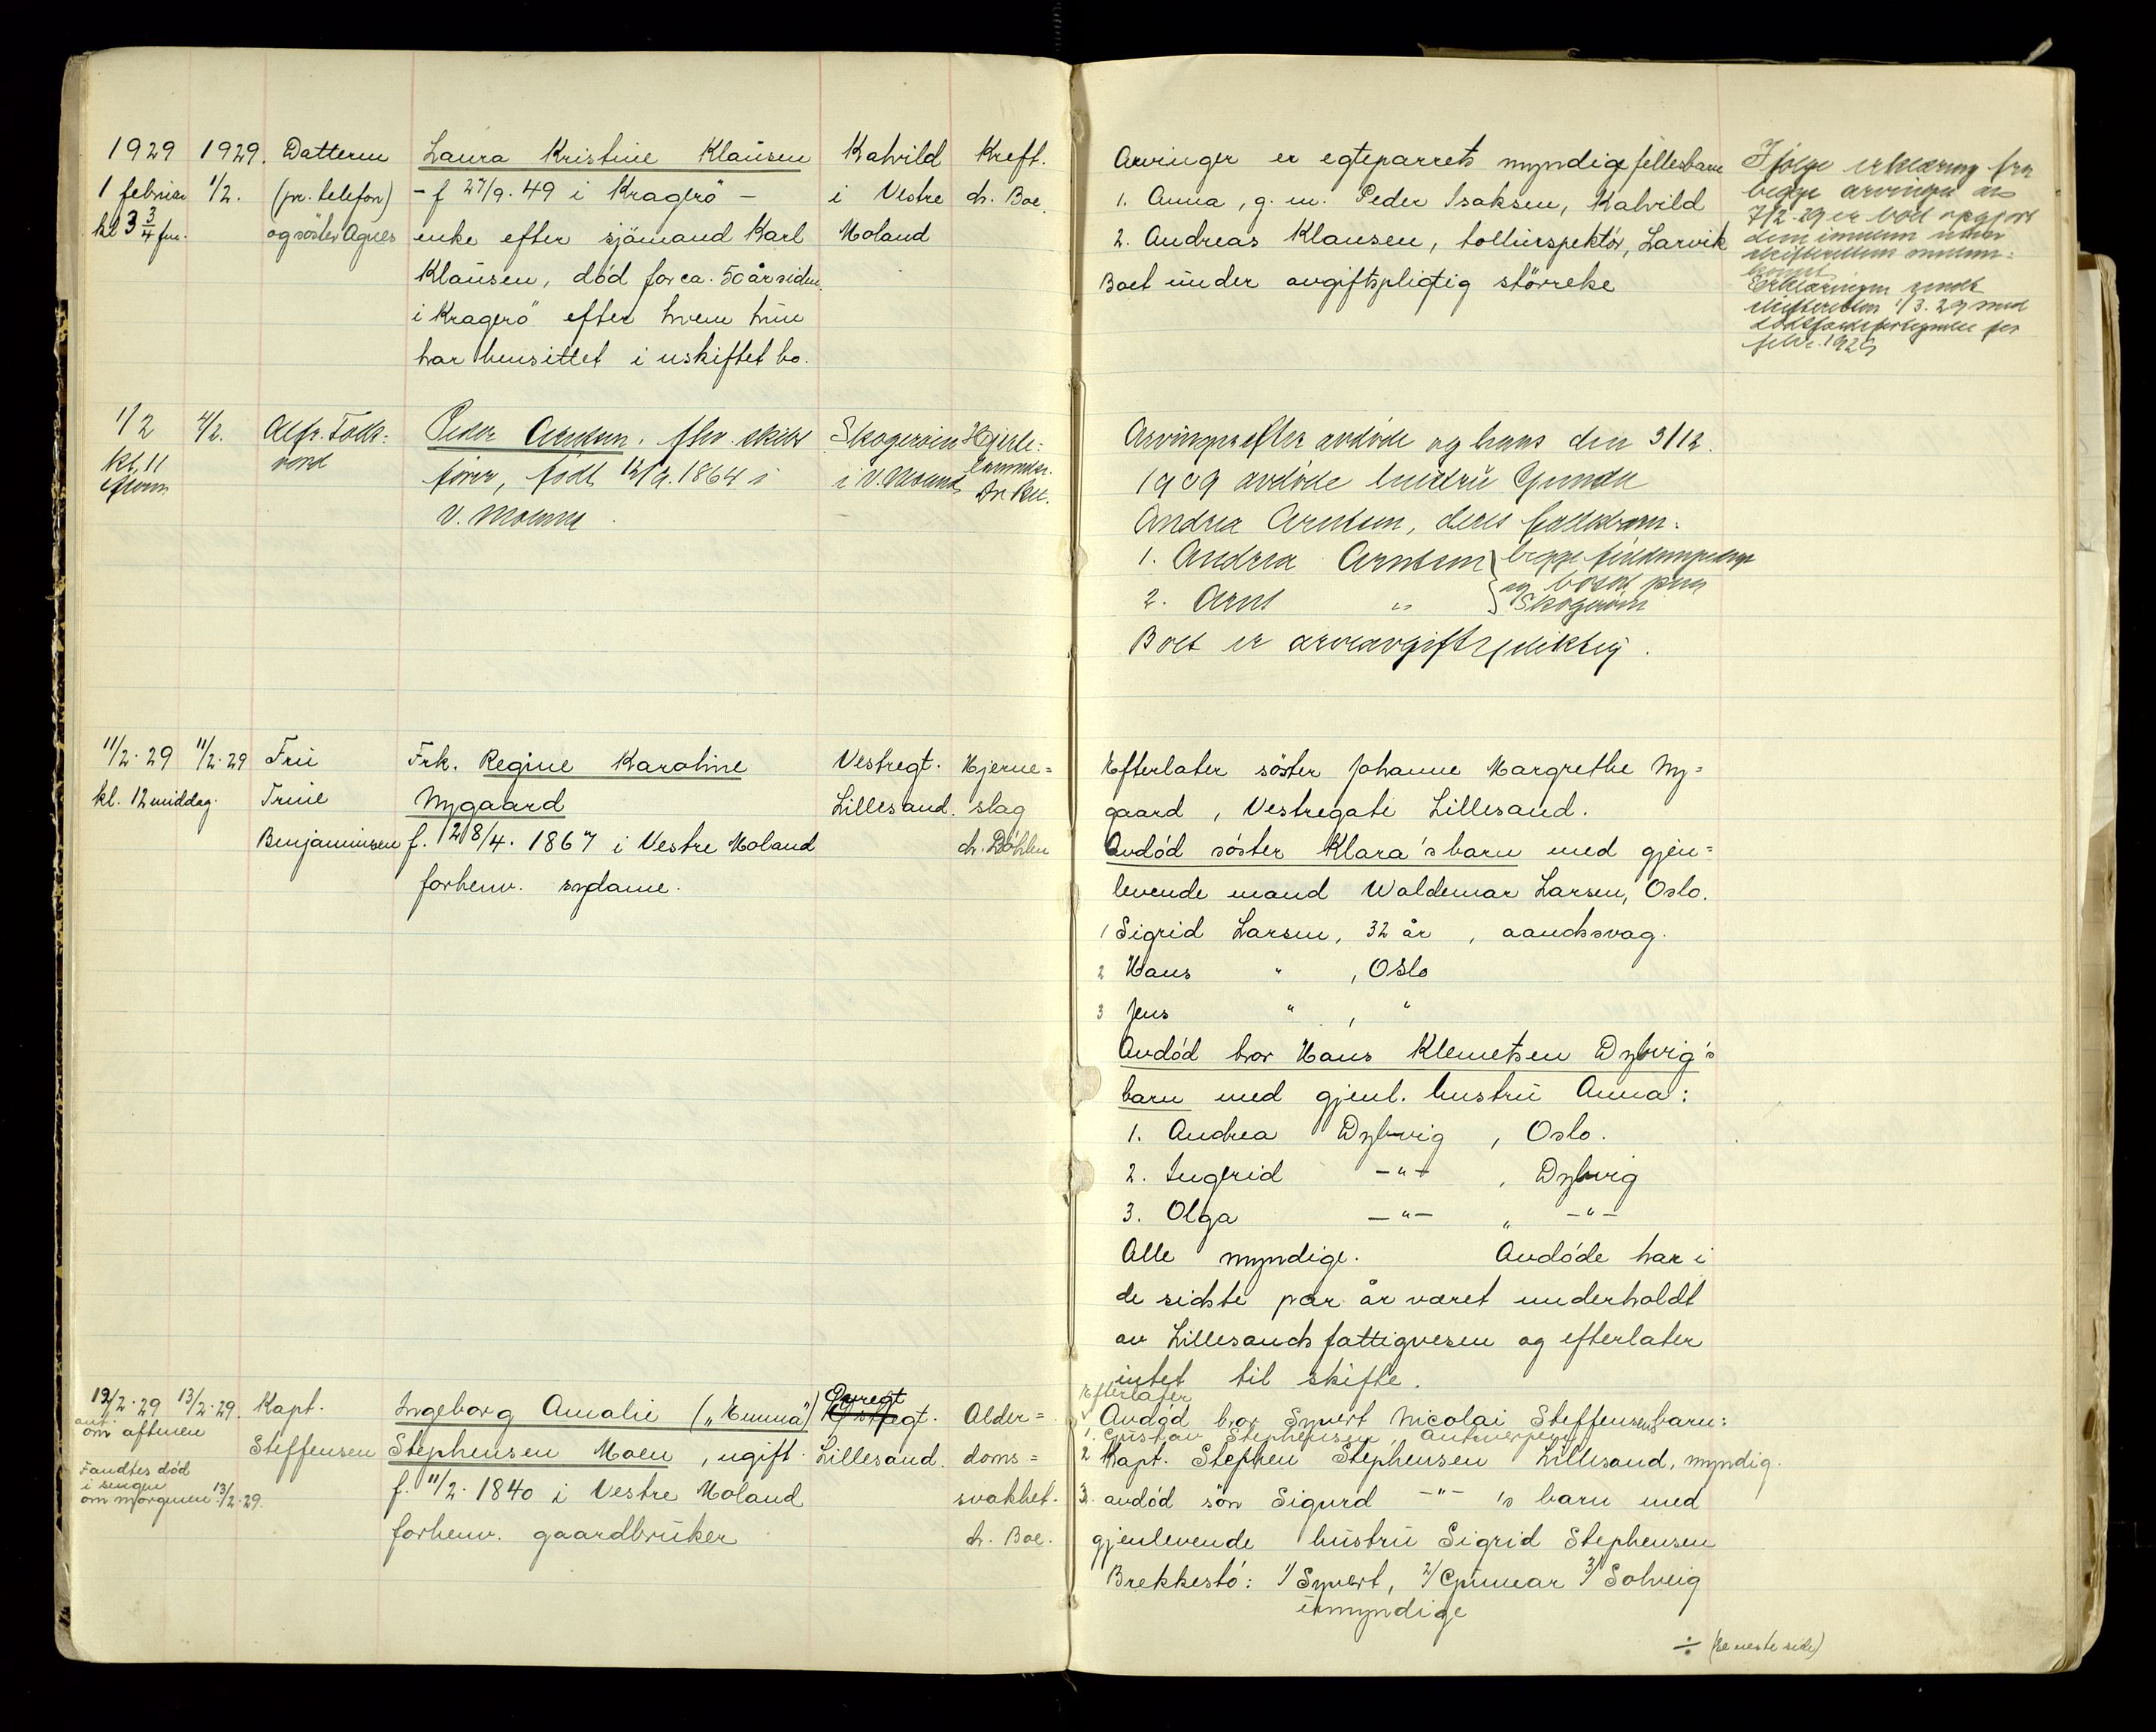 1929 1929. Datteren Laura Kristine Klausen Kalvild Kreft.
1 februar 1/2. (pr. telefon) - f 27/9. 49 i Kragerö - i Vestre dr. Boe.
kl 3 3/4 fm. og söster Agnes enke efter sjömand Karl Moland
Klausen, död for ca. 50 år siden
i Kragerö efter hvem hun
har hensittet i uskiftet bo.
1/2 4/2. Alfr. Folk-
kl. 11 vord
efterm
Peder Arntsen, fhv. skibs Skogerøen Hjerte-
fører, født 12/9. 1864 i i V. Moland lammelse.
V. Moland
11/2. 29 11/2. 29 Fru Frk. Regine Karoline Vestregt. Hjerne=
kl. 12 middag. Trine Nygaard Lillesand. slag
Benjaminsen f. 28/4. 1867 i Vestre Moland dr. Döhlen
forhenv. sydame.
12/2. 29 13/2. 29. Kapt. Ingeborg Amalie („Emma") Vestregt. Øvregt Alder=
anti
om aftenen
Steffensen Stephensen Moen, ugift. Lillesand. doms=
Fandtes død
i sengen
om morgenen 13/2. 29.
f. 11/2. 1840 i Vestre Moland svakhet.
forhenv. gaardbruker dr. Boe.
Arvinger er egteparrets myndige fellesbarn
1. Anna, g. m. Peder Isaksen, Kalvild
2. Andreas Klausen, tollinspektør, Larvik
Boet under avgiftspligtig störrelse
Ifølge erklæring fra
begge arvinger av
7/2-29 er boet opgjort
dem imellem uten
skifterettens mellem-
komst
Erklæringen sendt
skifteretten 1/3. 29 med
dødsfaldsfortegnelse for
febr. 1929
Arvinger efter avdöde og hans den 3/12.
1909 avdöde hustru Gunda
Andrea Arntsen, deres fellesbarn:
1. Andrea Arntsen } begge fuldmyndige
2. Arnt " } og bosat paa
Skogerøen
Boet er arveavgiftspliktig.
Efterlater söster Johanne Margrethe Ny=
gaard, Vestregate Lillesand.
Avdöd söster Klara's barn med gjen=
levende mand Waldemar Larsen, Oslo.
1 Sigrid Larsen, 32 år, aandssvag.
2 Hans " , Oslo
3 Jens " , "
Avdöd bror Hans Klemetsen Dybvig's
barn med gjenl. hustru Anna:
1. Andrea Dybvig, Oslo.
2. Ingerid -"- , Dybvig
3. Olga -"- „ -"-
Alle myndige. Avdöde har i
de sidste par år været underholdt
av Lillesands fattigvesen og efterlater
intet til skifte.
Efterlater
Avdöd bror Syvert Nicolai Steffensens barn:
1. Gustav Stephensen, Antwerpen
2 Kapt. Stephen Stephensen Lillesand, myndig.
3. avdöd sön Sigurd -"- 's barn med
gjenlevende hustru Sigrid Stephensen
Brekkestö: 1/ Syvert, 2/ Gunnar 3/ Solveig
umyndige
÷ (se neste side)